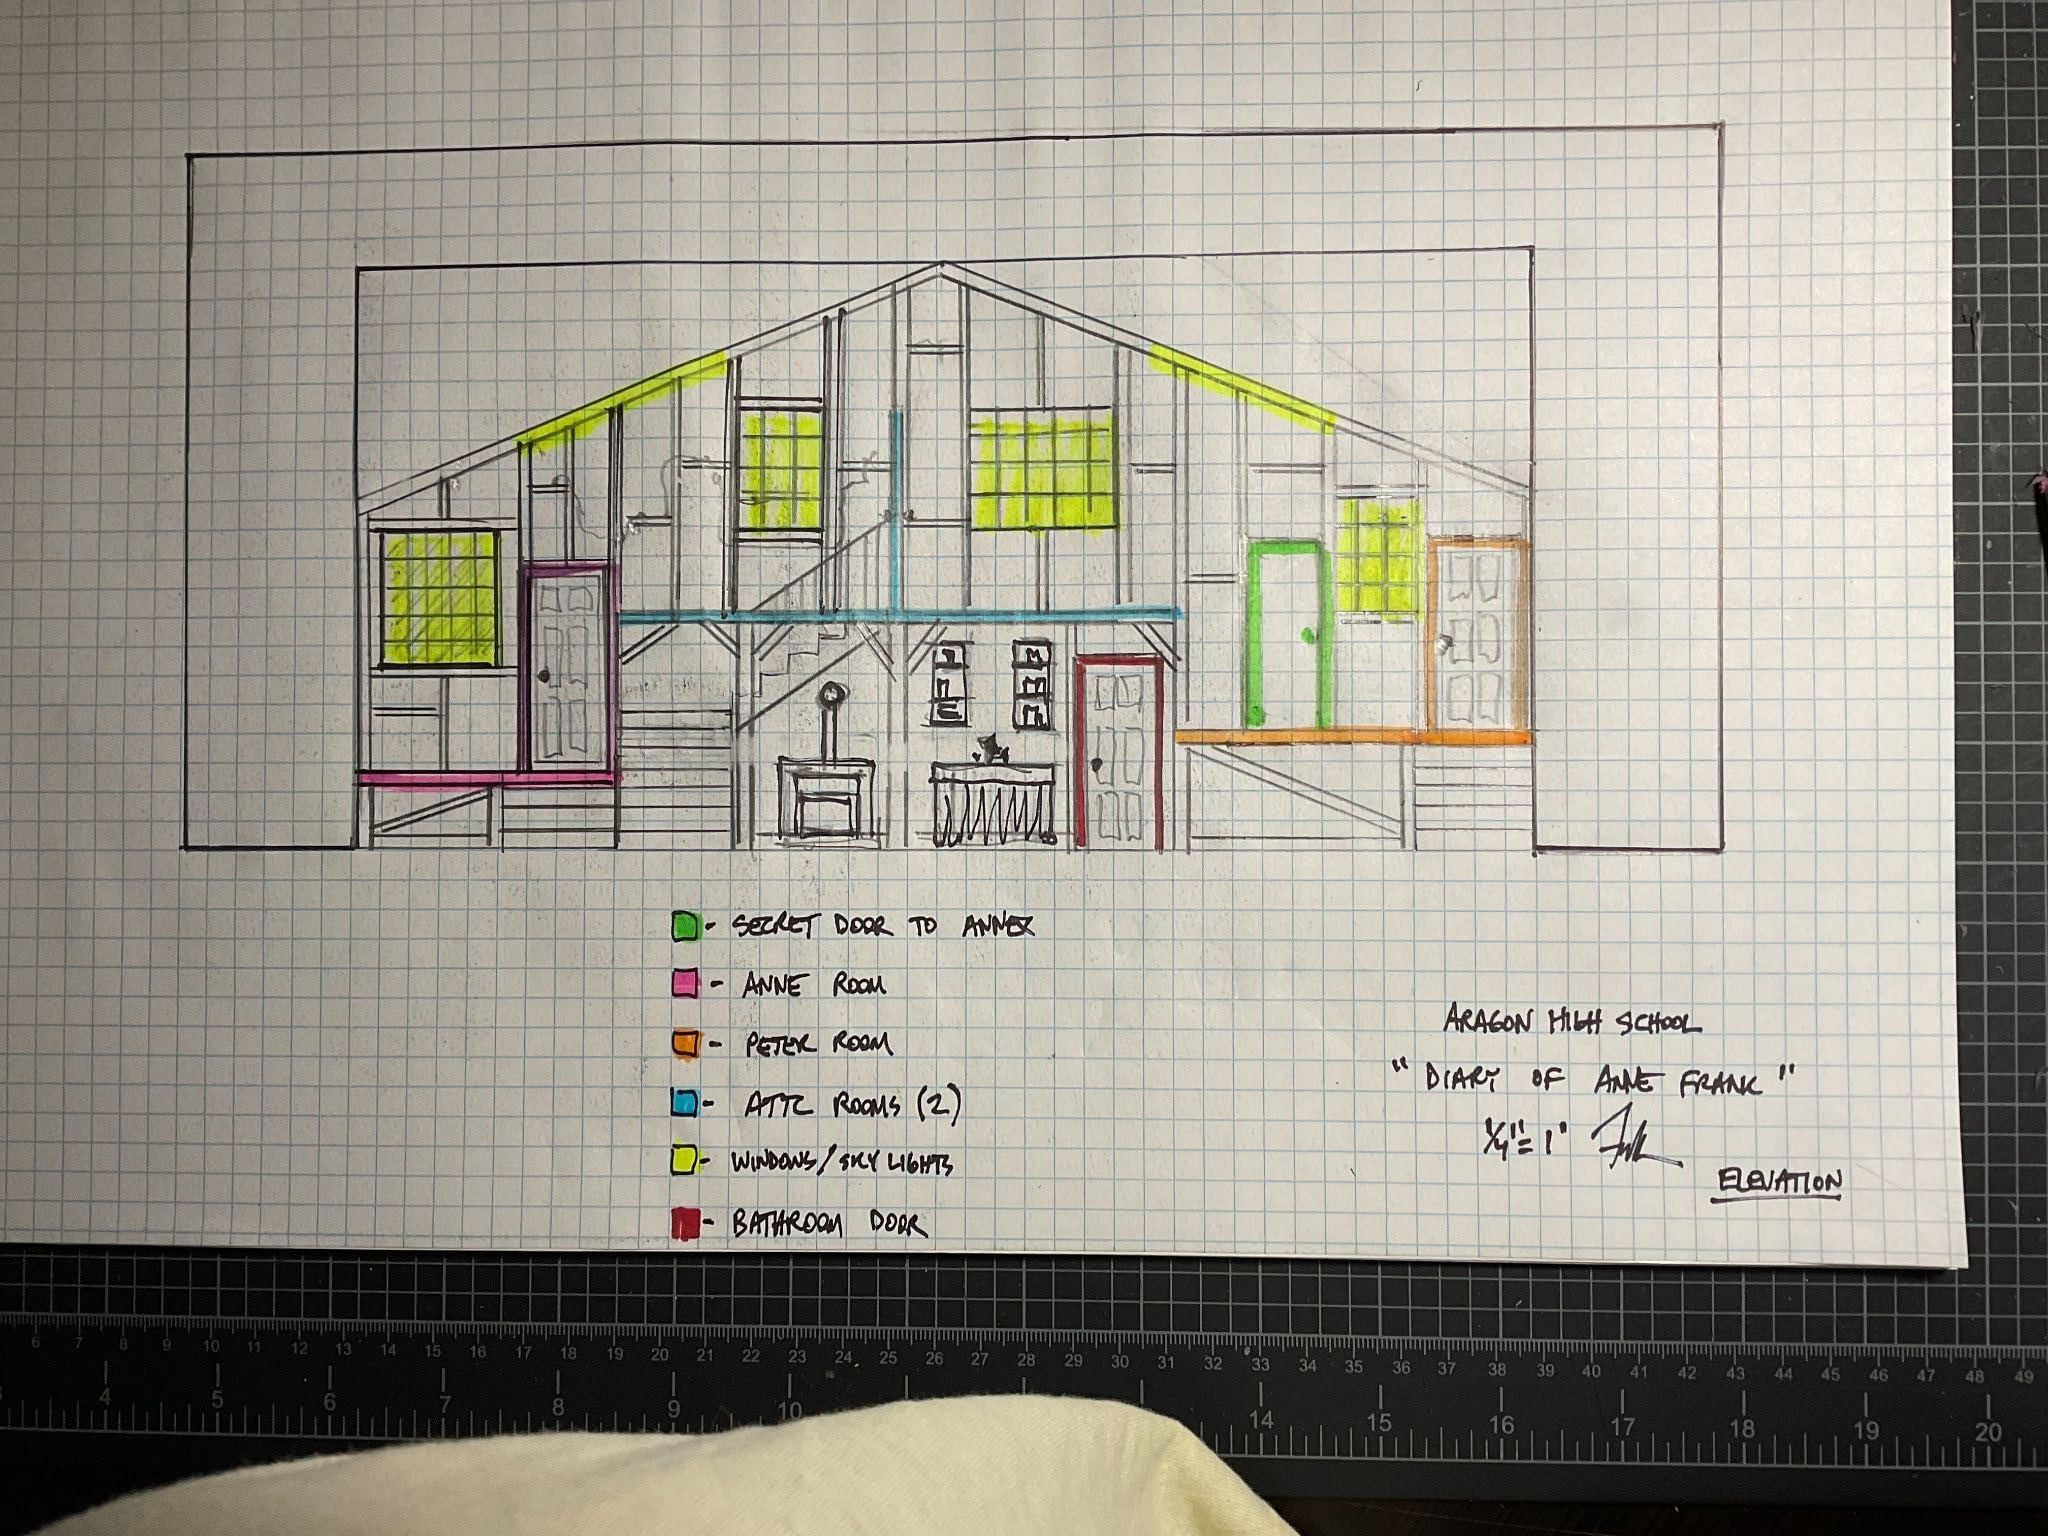 - SECRET DOOR TO ANNEX
- ANNE ROOM
- PETER ROOM
- ATTC ROOMS (2)
- WINDOWS/SKY LIGHTS
- BATHROOM DOOR
ARAGON HIGH SCHOOL
"DIARY OF ANNE FRANK"
1/4"=1'
ELEVATION
6 7 8 9 10 11 12 13 14 15 16 17 18 19 20 21 22 23 24 25 26 27 28 29 30 31 32 33 34 35 36 37 38 39 40 41 42 43 44 45 46 47 48 49
4 5 6 7 8 9 10 14 15 16 17 18 19 20